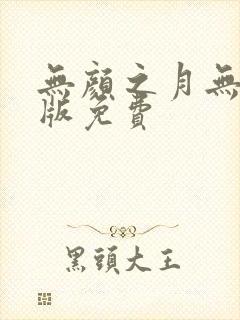 無顏之月無
版免費
黑頭大王